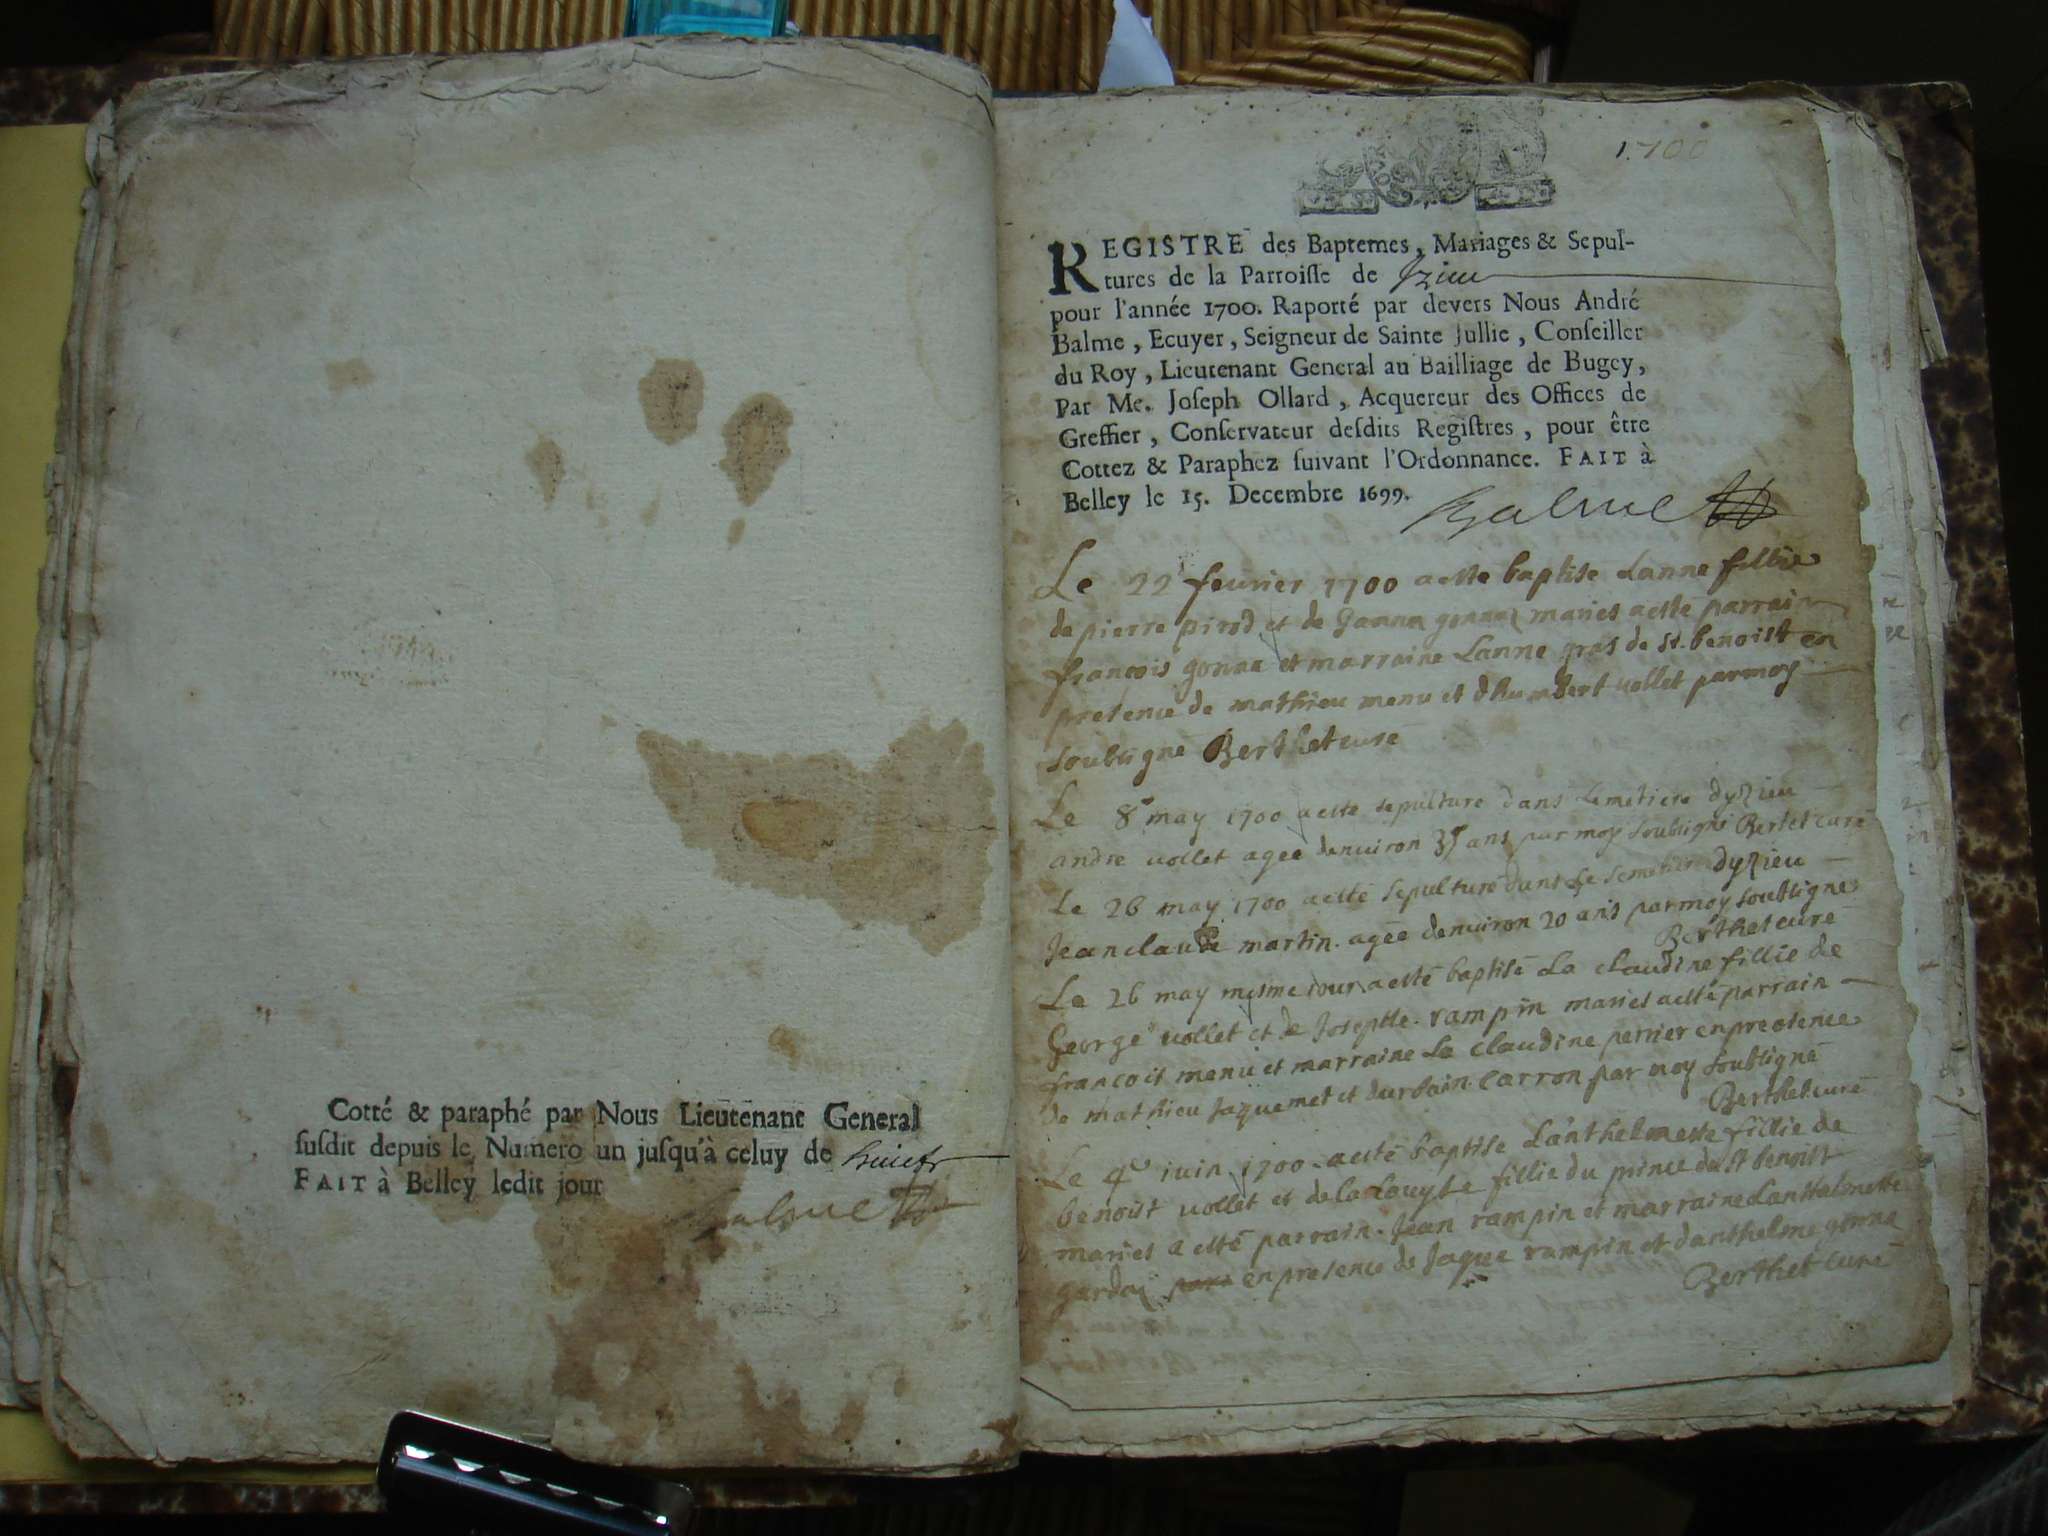 Cotté & paraphé par Nous Lieutenant General
susdit depuis le Numero un jusqu'à celuy de huict
FAIT à Belley ledit jour
Balme
1700
REGISTRE des Baptemes, Mariages & Sepul-
tures de la Parroisse de Izieu
pour l'année 1700. Raporté par devers Nous André
Balme, Ecuyer, Seigneur de Sainte Jullie, Conseiller
du Roy, Lieutenant General au Bailliage de Bugey,
Par Me. Joseph Ollard, Acquereur des Offices de
Greffier, Conservateur desdits Registres, pour être
Cottez & Paraphez suivant l'Ordonnance. FAIT à
Belley le 15. Decembre 1699.
Balme
Le 22 fevrier 1700 a esté baptise Lanne fillie
de pierre pirod et de mariés a esté parrain
françois et marraine Lanne gras de St. benoist en
presence de mathieu menu et dhumbert vollet par moy
soubsigné Berthet curé
Le 8e may 1700 a esté sepulturé dans semetiere dyzieu
andré vollet agée denuiron 35 ans par moy soubsigné Bertet curé
Le 26 may 1700 a esté sepulturé dans Le semetiere dyzieu
Jean claude martin agée denuiron 20 ans par moy soubsigné
Berthet curé
Le 26 may mesme iour a esté baptisé La claudine fillie de
George vollet et de Josephte rampin mariés a esté parrain
françois menu et marraine La claudine perrier en presence
de mathieu Jaquemet et durbain carron par moy soubsigné
Berthet curé
Le 4e iuin 1700 a esté baptisé Lanthelmette fillie de
benoist vollet et de la Louyse fillie du prince de St benoist
mariés a esté parrain Jean rampin et marraine Lanthelmette
en presence de Jaque rampin et danthelme gonna
Berthet curé